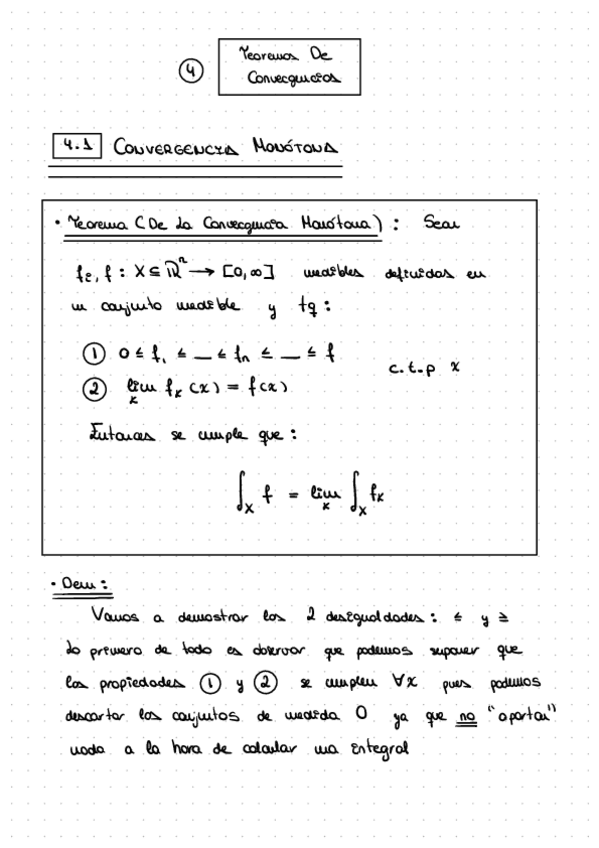 4
Teoremas De
Convergencias
4.1 CONVERGENCIA MONÓTONA
· Teorema (De La Convergencia Monótona): Sean
fᵢ, f : X ⊆ ℝⁿ → [0,∞] medibles definidas en
un conjunto medible y tq:
① 0 ≤ f₁ ≤ __ ≤ fₙ ≤ __ ≤ f
c.t.p x
② lim_k f_k(x) = f(x)
Entonces se cumple que:
∫_X f = lim_k ∫_X f_k
· Dem:
Vamos a demostrar las 2 desigualdades: ≤ y ≥
Lo primero de todo es observar que podemos suponer que
las propiedades ① y ② se cumplen ∀x pues podemos
descartar los conjuntos de medida 0 ya que no "aportan"
nada a la hora de calcular una integral